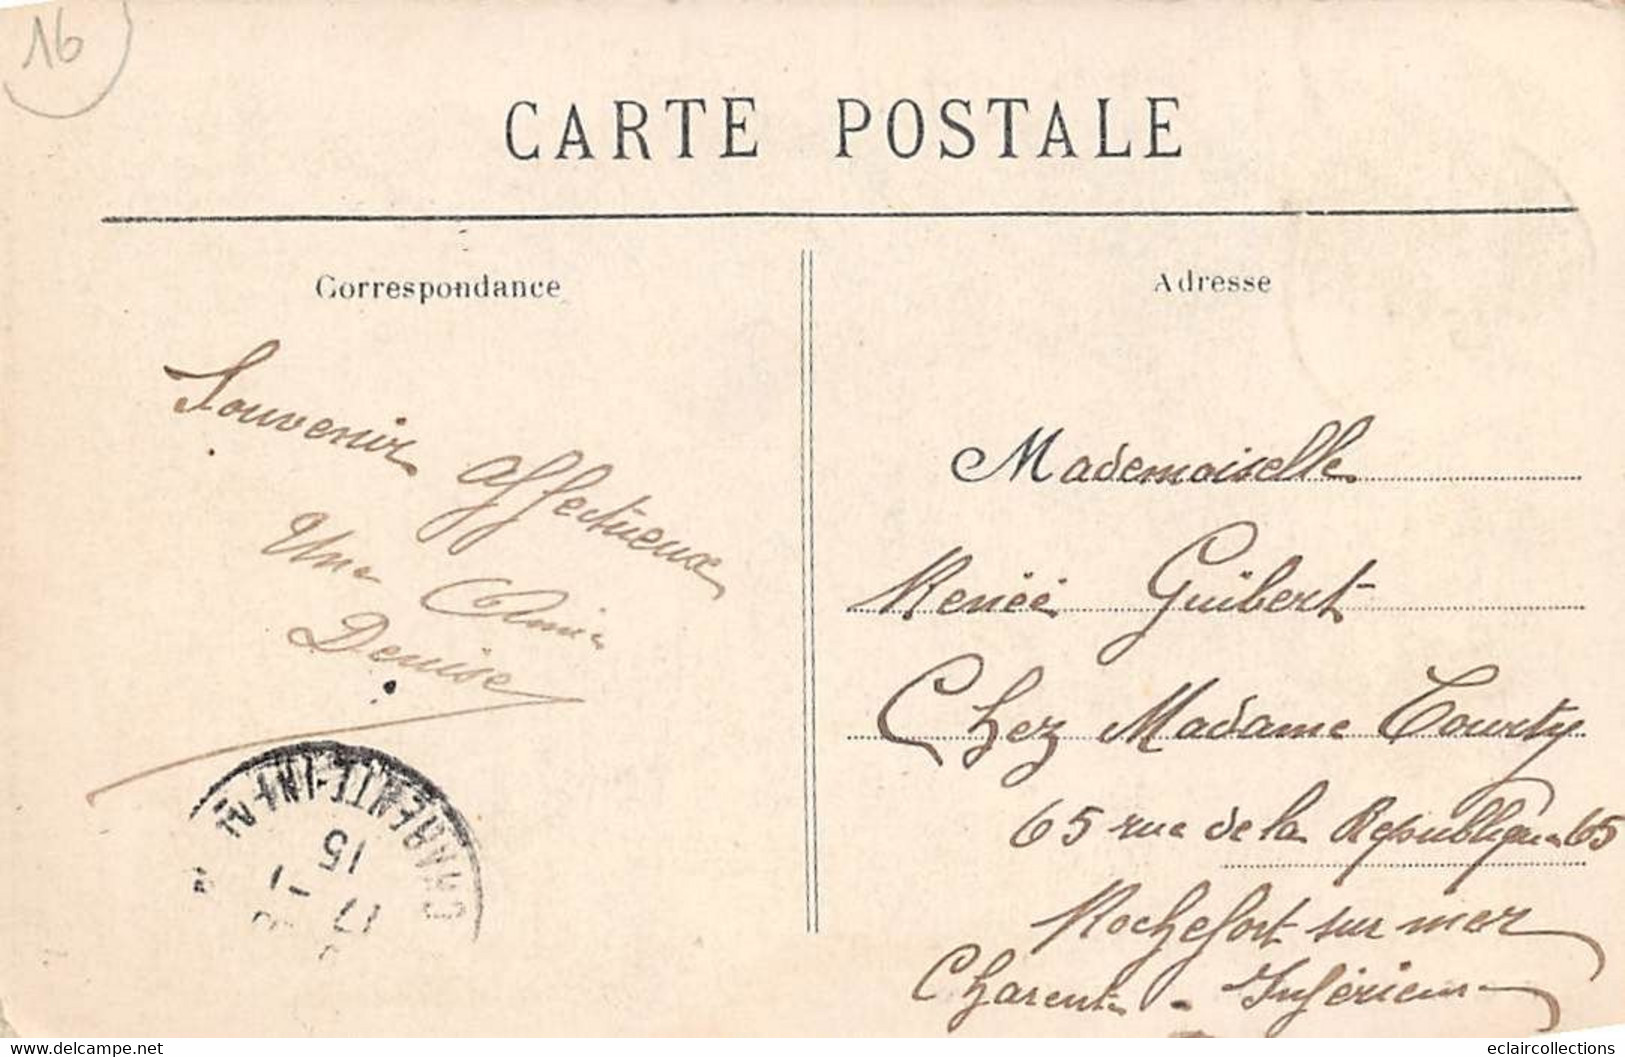 16
CARTE POSTALE
Correspondance
Souvenir affectueux
Une Amie
Denise
CHARENTE-INF RE
15
17 -1
Adresse
Mademoiselle
Renée Guibert
Chez Madame Courty
65 rue de la République 65
Rochefort sur mer
Charente - Inférieure
delcampe.net
eclaircollections